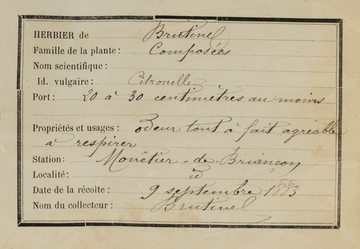 HERBIER de Brutinel
Famille de la plante: Composées
Nom scientifique:
Id. vulgaire: Citronelle
Port: 20 à 30 centimètres au moins
Propriétés et usages: odeur tout à fait agréable
à respirer
Station: Monêtier-de Briançon
Localité: id
Date de la récolte: 9 septembre 1883
Nom du collecteur: Brutinel